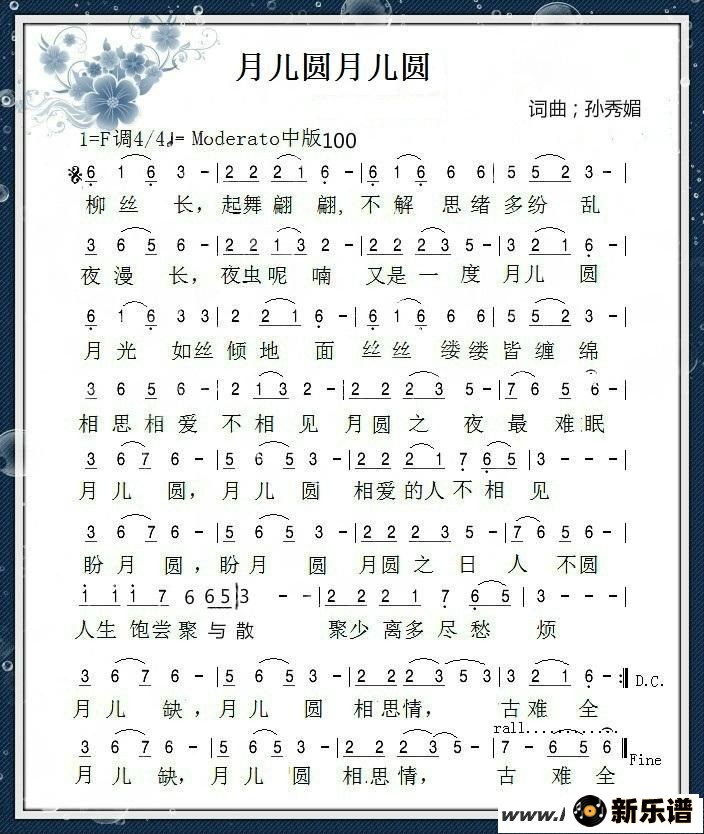 月儿圆月儿圆
词曲；孙秀媚
1=F调4/4♩= Moderato中版100
6 1 6 3 - | 2 2 2 1 6 - | 6 1 6 6 6 | 5 5 2 3 - |
柳丝长，起舞翩翩,不解思绪多纷乱
3 6 5 6 - | 2 2 1 3 2 - | 2 2 2 2 3 | 3 2 1 6 - |
夜漫长，夜虫呢喃又是一度月儿圆
6 1 6 3 3 | 2 2 1 6 - | 6 1 6 6 6 | 5 5 2 3 - |
月光如丝倾地面丝丝缕缕皆缠绵
3 6 5 6 - | 2 1 3 2 - | 2 2 2 3 5 - | 7 6 5 6 - |
相思相爱不相见月圆之夜最难眠
3 6 7 6 - | 5 6 5 3 - | 2 2 2 1 7 6 5 | 3 - - - |
月儿圆，月儿圆相爱的人不相见
3 6 7 6 - | 5 6 5 3 - | 2 2 2 2 3 5 - | 7 6 5 6 - |
盼月圆，盼月圆月圆之日人不圆
1 1 1 7 6 6 5 3 - - | 2 2 1 2 7 6 5 | 3 - - - |
人生饱尝聚与散聚少离多尽愁烦
3 6 7 6 - | 5 6 5 3 - | 2 2 2 3 5 3 | 3 2 1 6 - :‖ D.C.
月儿缺，月儿圆相思情，古难全
rall..............
3 6 7 6 - | 5 6 5 3 - | 2 2 2 3 5 - | 7 - 6 5 6 ‖ Fine
月儿缺，月儿圆相思情，古难全
www.
新乐谱